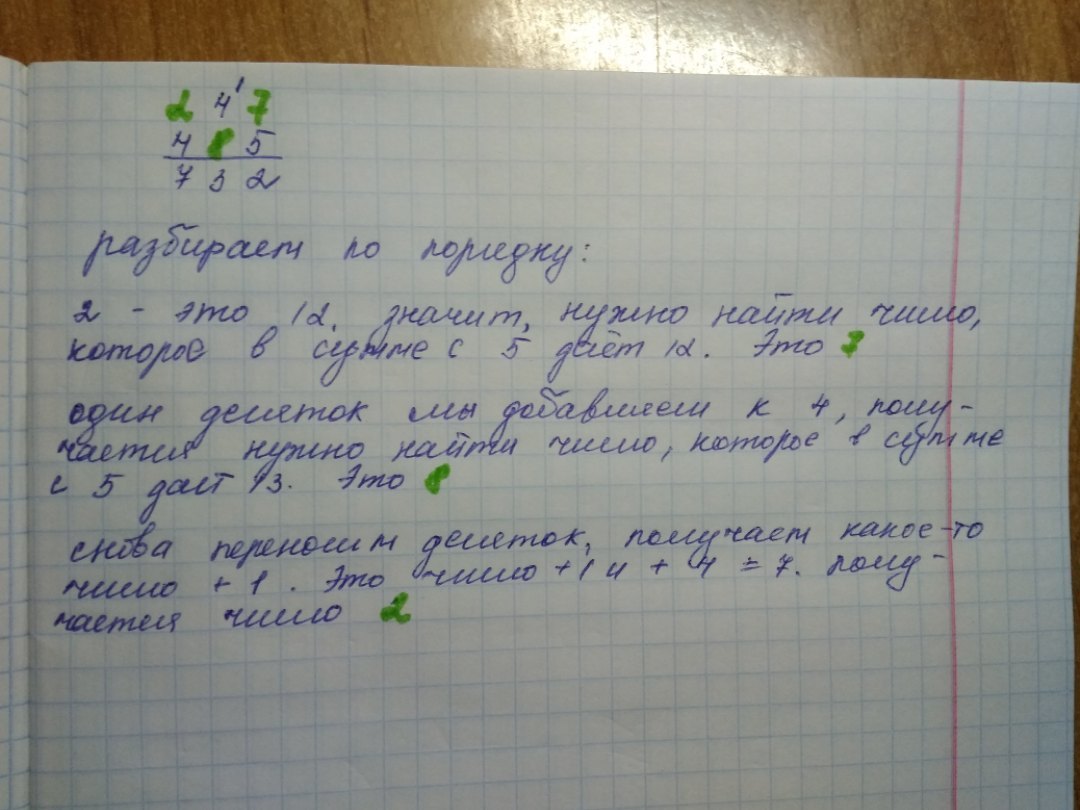 2 4' 7
4 8 5
7 3 2
разбирает по порядку:
2 - это 12. значит, нужно найти число,
которое в сумме с 5 даёт 12. Это 7
один десяток мы добавляем к 4, полу-
чается нужно найти число, которое в сумме
с 5 даст 13. Это 8
снова переносим десяток, получает какое-то
число + 1. Это число + 1 и + 4 = 7. полу-
чается число 2